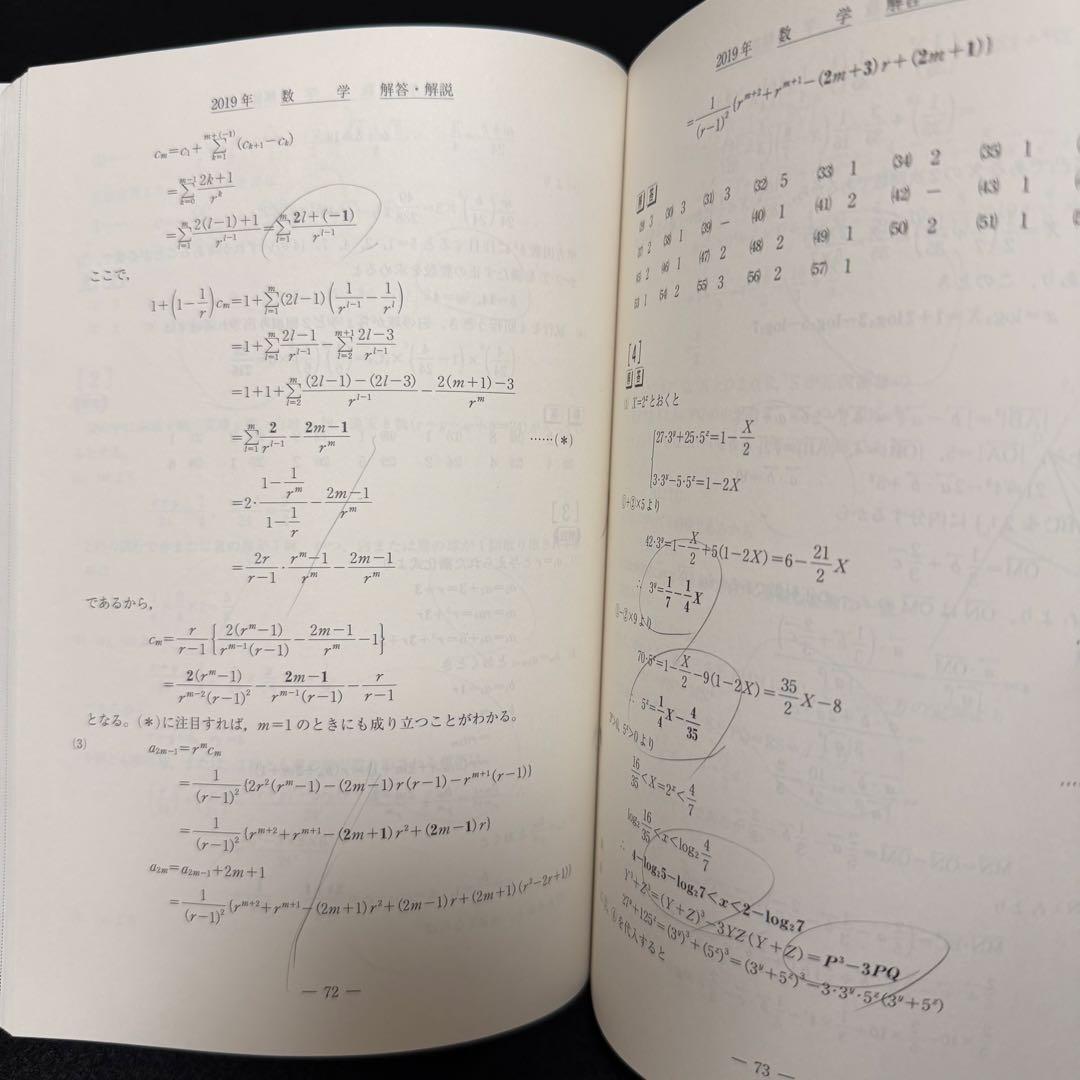 2019年 数 学 解答・解説
c_m=c_1+\sum_{k=1}^{m+(-1)}(c_{k+1}-c_k)
=\sum_{k=0}^{m-1}\frac{2k+1}{r^k}
=\sum_{l=1}^{m}\frac{2(l-1)+1}{r^{l-1}}=\sum_{l=1}^{m}\frac{2l+(-1)}{r^{l-1}}
ここで,
1+\left(1-\frac{1}{r}\right)c_m=1+\sum_{l=1}^{m}(2l-1)\left(\frac{1}{r^{l-1}}-\frac{1}{r^l}\right)
=1+\sum_{l=1}^{m}\frac{2l-1}{r^{l-1}}-\sum_{l=2}^{m+1}\frac{2l-3}{r^{l-1}}
=1+1+\sum_{l=2}^{m}\frac{(2l-1)-(2l-3)}{r^{l-1}}-\frac{2(m+1)-3}{r^m}
=\sum_{l=1}^{m}\frac{2}{r^{l-1}}-\frac{2m-1}{r^m} ……(*)
=2\cdot\frac{1-\frac{1}{r^m}}{1-\frac{1}{r}}-\frac{2m-1}{r^m}
=\frac{2r}{r-1}\cdot\frac{r^m-1}{r^m}-\frac{2m-1}{r^m}
であるから,
c_m=\frac{r}{r-1}\left\{\frac{2(r^m-1)}{r^{m-1}(r-1)}-\frac{2m-1}{r^m}-1\right\}
=\frac{2(r^m-1)}{r^{m-2}(r-1)^2}-\frac{2m-1}{r^{m-1}(r-1)}-\frac{r}{r-1}
となる。(*)に注目すれば, m=1のときにも成り立つことがわかる。
(3) a_{2m-1}=r^m c_m
=\frac{1}{(r-1)^2}{2r^2(r^m-1)-(2m-1)r(r-1)-r^{m+1}(r-1)}
=\frac{1}{(r-1)^2}{r^{m+2}+r^{m+1}-(2m+1)r^2+(2m-1)r}
a_{2m}=a_{2m-1}+2m+1
=\frac{1}{(r-1)^2}{r^{m+2}+r^{m+1}-(2m+1)r^2+(2m-1)r+(2m+1)(r^2-2r+1)}
— 72 —
2019年 数 学 解答
=\frac{1}{(r-1)^2}{r^{m+2}+r^{m+1}-(2m+3)r+(2m+1)}
解答
(29) 3 (30) 3 (31) 3 (32) 5 (33) 1 (34) 2 (35) 1
(37) 2 (38) 1 (39) − (40) 1 (41) 2 (42) − (43) 1
(45) 2 (46) 1 (47) 2 (48) 2 (49) 1 (50) 2 (51) 1
(53) 1 (54) 2 (55) 3 (56) 2 (57) 1
[4]
解答
X=2^xとおくと
27\cdot3^y+25\cdot5^z=1-\frac{X}{2}
3\cdot3^y-5\cdot5^z=1-2X
①+②×5より
42\cdot3^y=1-\frac{X}{2}+5(1-2X)=6-\frac{21}{2}X
∴ 3^y=\frac{1}{7}-\frac{1}{4}X
①−②×9より
70\cdot5^z=1-\frac{X}{2}-9(1-2X)=\frac{35}{2}X-8
∴ 5^z=\frac{1}{4}X-\frac{4}{35}
3^y>0, 5^z>0より
\frac{16}{35}<X=2^x<\frac{4}{7}
\log_2\frac{16}{35}<x<\log_2\frac{4}{7}
∴ 4-\log_2 5-\log_2 7<x<2-\log_2 7
Y^3+Z^3=(Y+Z)^3-3YZ(Y+Z)=P^3-3PQ
27^y+125^z=(3^y)^3+(5^z)^3=(3^y+5^z)^3=3\cdot3^y\cdot5^z(3^y+5^z)
を代入すると
— 73 —